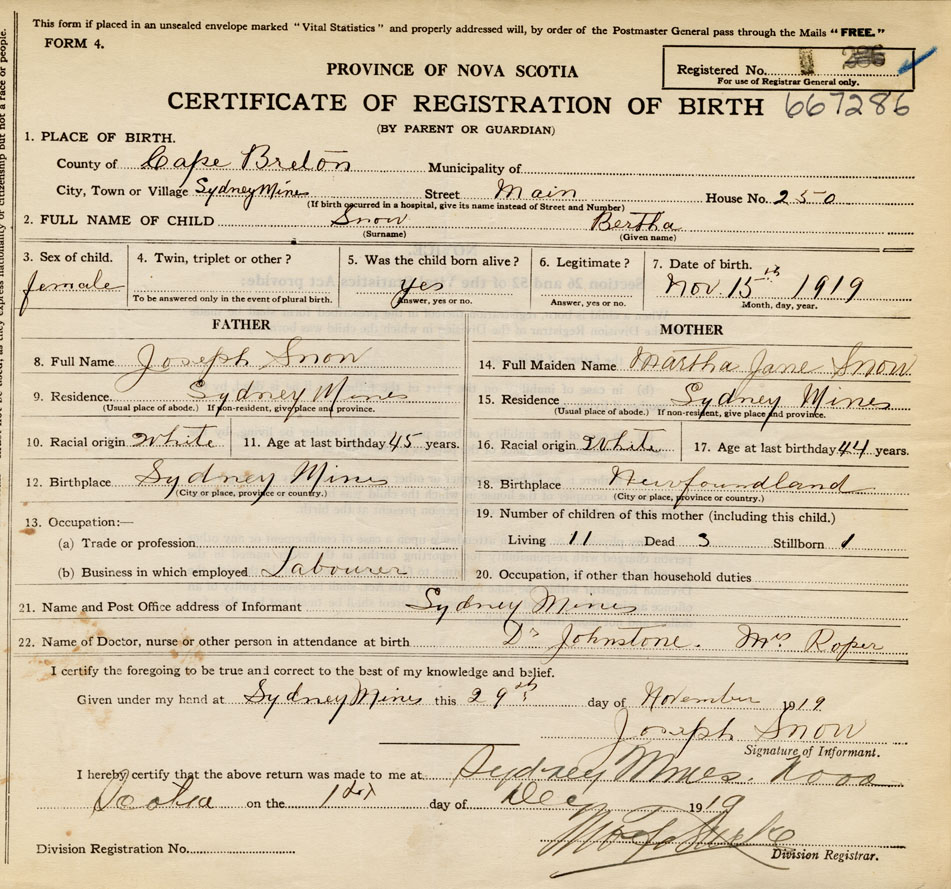 This form if placed in an unsealed envelope marked "Vital Statistics" and properly addressed will, by order of the Postmaster General pass through the Mails "FREE."
FORM 4.
Registered No. 286
For use of Registrar General only.
PROVINCE OF NOVA SCOTIA
CERTIFICATE OF REGISTRATION OF BIRTH 667286
(BY PARENT OR GUARDIAN)
1. PLACE OF BIRTH.
County of Cape Breton Municipality of
City, Town or Village Sydney Mines Street Main House No. 250
(If birth occurred in a hospital, give its name instead of Street and Number)
2. FULL NAME OF CHILD Snow Bertha
(Surname) (Given name)
3. Sex of child. 4. Twin, triplet or other? 5. Was the child born alive? 6. Legitimate? 7. Date of birth.
female yes Nov 15th 1919
To be answered only in the event of plural birth. Answer, yes or no. Answer, yes or no. Month, day, year.
FATHER MOTHER
8. Full Name Joseph Snow 14. Full Maiden Name Martha Jane Snow
9. Residence. Sydney Mines 15. Residence Sydney Mines
(Usual place of abode.) If non-resident, give place and province. (Usual place of abode.) If non-resident, give place and province.
10. Racial origin White 11. Age at last birthday 45 years. 16. Racial origin White 17. Age at last birthday 44 years.
12. Birthplace Sydney Mines 18. Birthplace Newfoundland
(City or place, province or country.) (City or place, province or country.)
13. Occupation:— 19. Number of children of this mother (including this child.)
(a) Trade or profession Living 11 Dead 3 Stillborn 1
(b) Business in which employed Labourer 20. Occupation, if other than household duties
21. Name and Post Office address of Informant Sydney Mines
22. Name of Doctor, nurse or other person in attendance at birth Dr Johnstone. Mrs Roper
I certify the foregoing to be true and correct to the best of my knowledge and belief.
Given under my hand at Sydney Mines this 29th day of November 1919
Joseph Snow
Signature of Informant.
I hereby certify that the above return was made to me at Sydney Mines. Nova
Scotia on the 1st day of Dec 1919
Division Registration No.
Division Registrar.